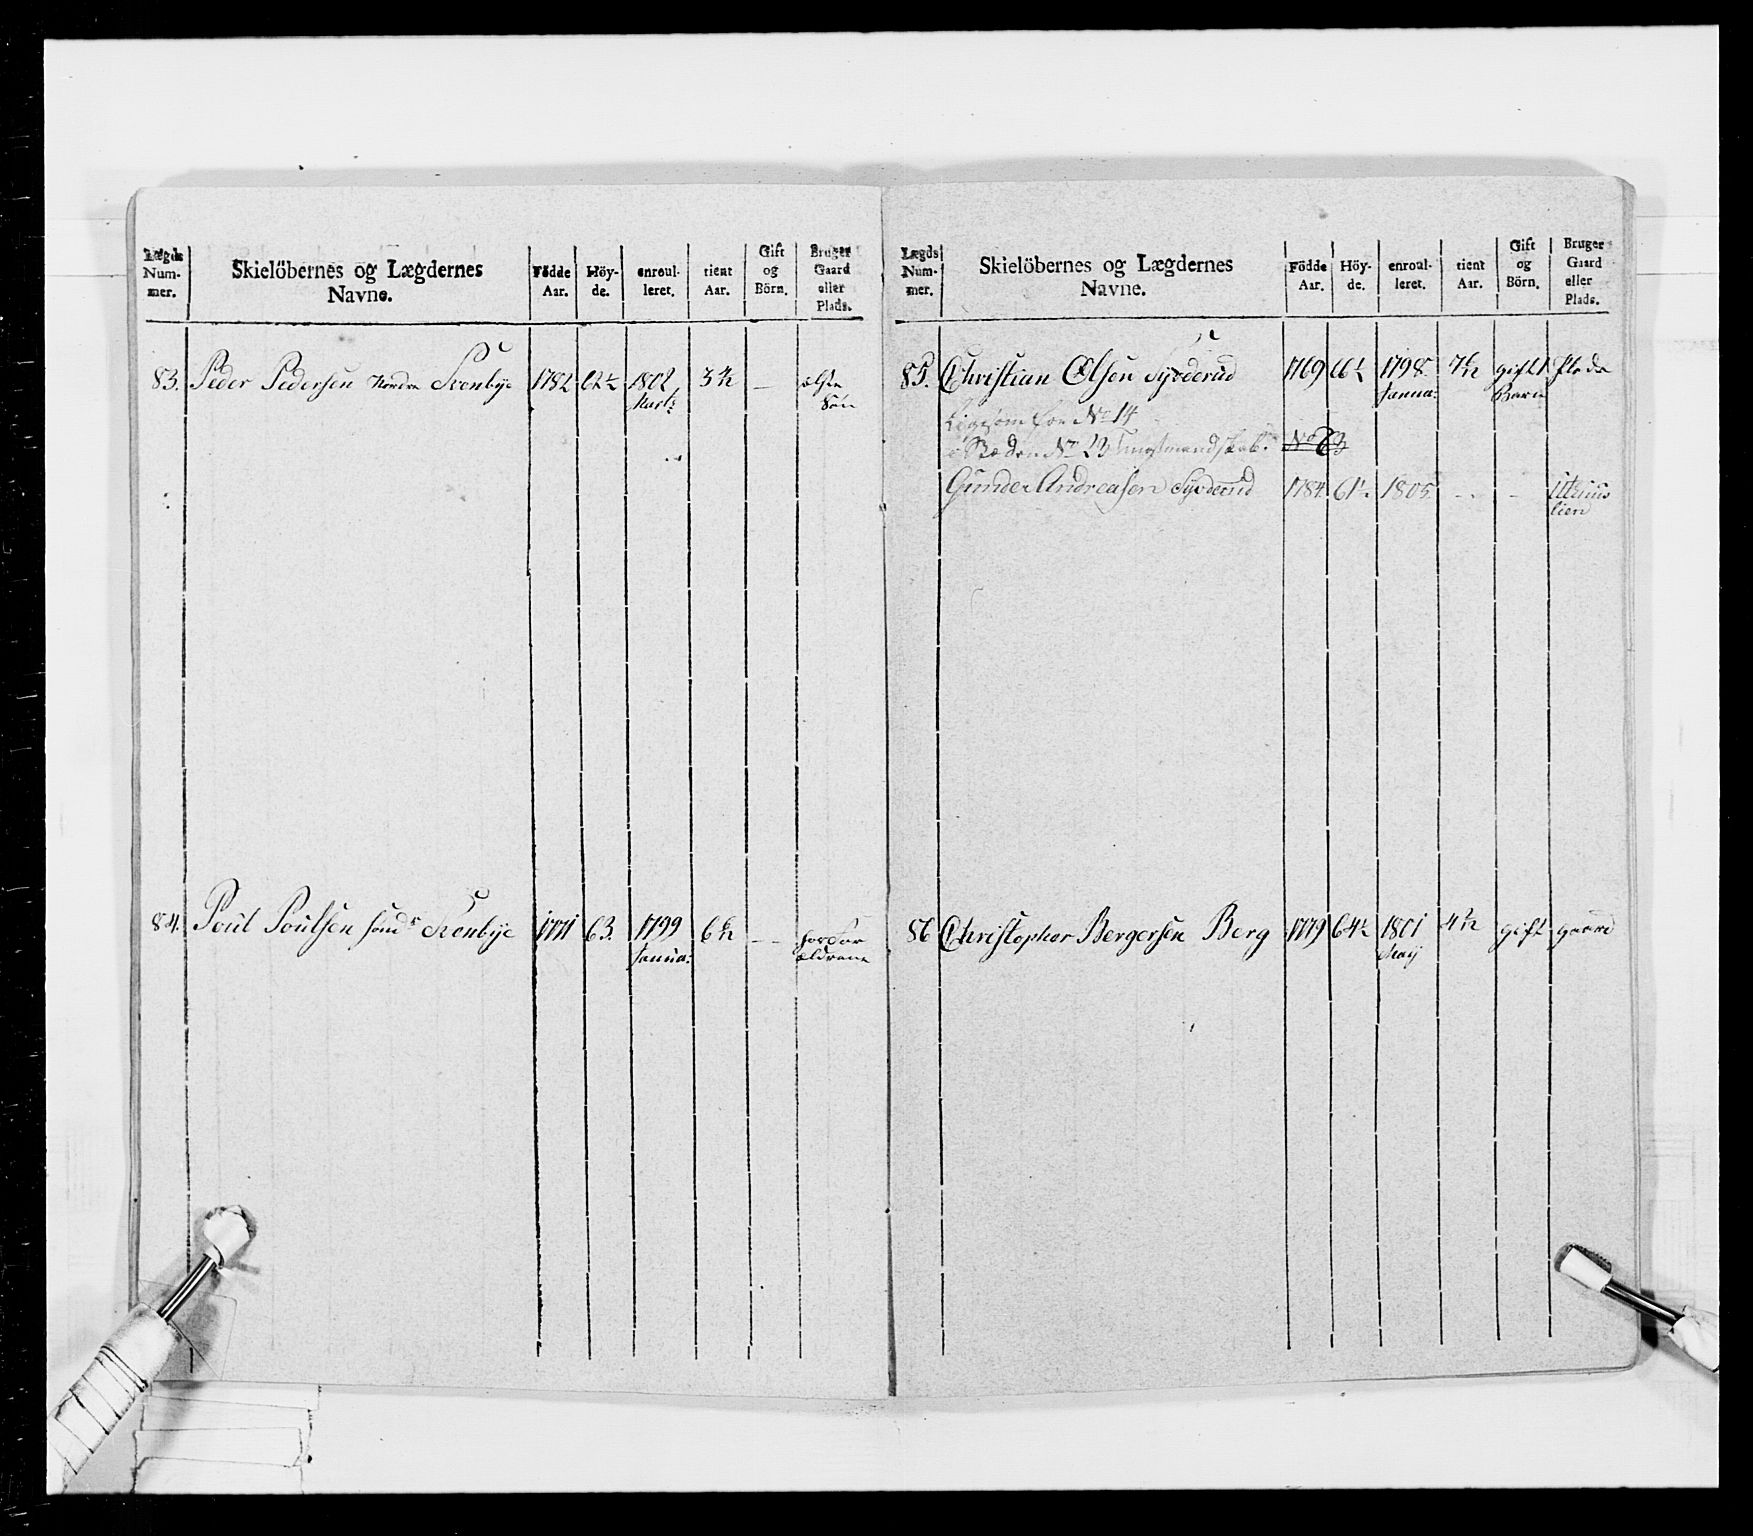 Lægds Num- mer. Skielöbernes og Lægdernes Navne. Födde Aar. Höy- de. enroul- leret. tient Aar. Gift og Börn. Bruger Gaard eller Plads.
83. Peder Pedersen Nordre Svenbye 1782 62½ 1802 3½ — ælste
Marts Søn
84. Poul Poulsen sønd 1771 63. 1799 6½ — forsør
Janua: ældrene
Lægds Num- mer. Skielöbernes og Lægdernes Navne. Födde Aar. Höy- de. enroul- leret. tient Aar. Gift og Börn. Bruger Gaard eller Plads.
85. Christian Olsen Syvderud 1769 66½ 1798 7½ gift 1 Plads
Janua: Barn
Ligesom for No 14
i Stæden No 23
Gunder Andreasen Syvderud 1784 61½ 1805 - -
lien
86 Christopher Bergersen Berg 1779 64½ 1801 4½ gift gaard
May